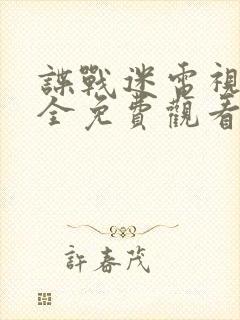 諜戰迷雷視
全免費觀看
許春茂